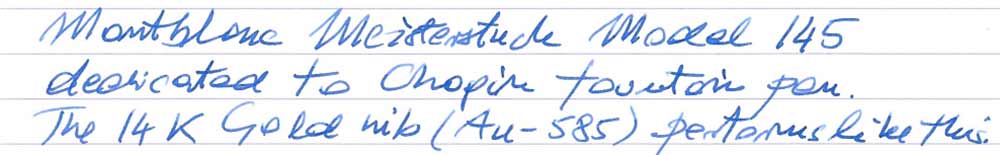 Montblanc Meisterstuck Model 145
dedicated to Chopin fountain pen.
The 14K Gold nib (Au-585) performs like this.